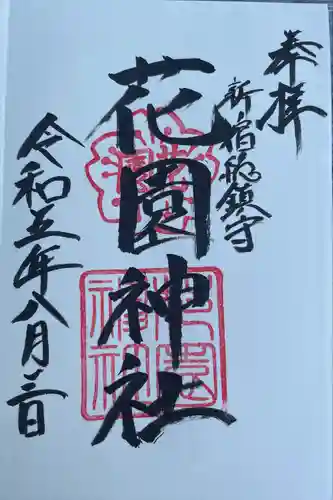 奉拝
新宿総鎮守
花園神社
令和五年八月三日
花園神社